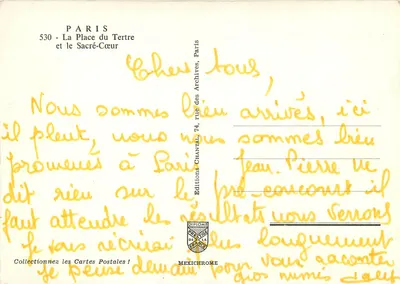 PARIS
530 - La Place du Tertre
et le Sacré-Cœur
Editions Chantal, 74, rue des Archives, Paris
Chers tous,
Nous sommes bien arrivés, ici
il pleut, nous nous sommes bien
promenés à Paris Jean-Pierre ne
dit rien sur le pré-concourt il
faut attendre les résultats nous verrons
je vous récrirai plus longuement
je pense demain pour vous raconter
gros mimis
MEXICHROME
Collectionnez les Cartes Postales !